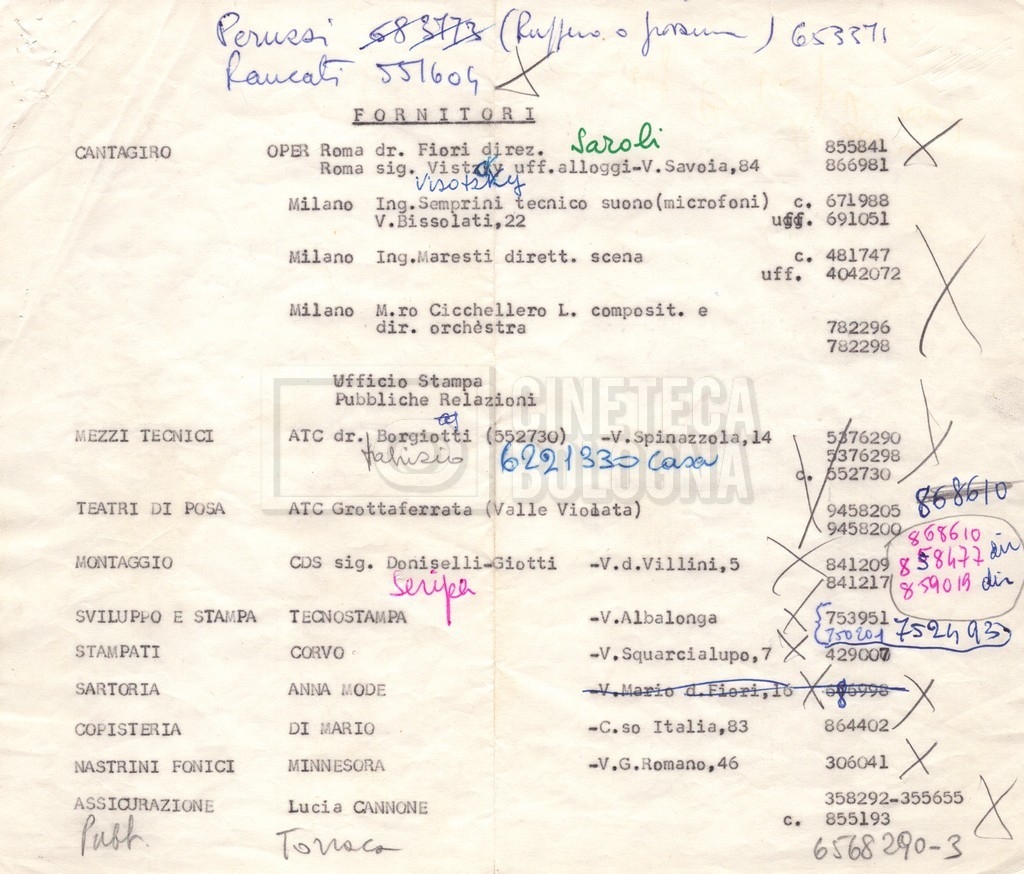 Perussi 683773 (Ruffino o ) 653371
Rancati 551604
FORNITORI
Saroli
CANTAGIRO OPER Roma dr. Fiori direz. 855841
Roma sig. Vistzky uff.alloggi-V.Savoia,84 866981
Visotsky
Milano Ing.Semprini tecnico suono(microfoni) c. 671988
V.Bissolati,22 uff. 691051
Milano Ing.Maresti dirett. scena c. 481747
uff. 4042072
Milano M.ro Cicchellero L. composit. e
dir. orchèstra 782296
782298
Ufficio Stampa
Pubbliche Relazioni
CINETECA
BOLOGNA
MEZZI TECNICI ATC dr. Borgiotti (552730) -V.Spinazzola,14 5376290
5376298
fabrizio 6221330 casa c. 552730
868610
TEATRI DI POSA ATC Grottaferrata (Valle Violata) 9458205
9458200
868610
858477 dir
859019 dir
MONTAGGIO CDS sig. Doniselli-Giotti -V.d.Villini,5 841209
841217
Seripa
SVILUPPO E STAMPA TECNOSTAMPA -V.Albalonga 753951
750201 752493
STAMPATI CORVO -V.Squarcialupo,7 429007
SARTORIA ANNA MODE -V.Mario d.Fiori,16 686998
COPISTERIA DI MARIO -C.so Italia,83 864402
NASTRINI FONICI MINNESORA -V.G.Romano,46 306041
ASSICURAZIONE Lucia CANNONE 358292-355655
c. 855193
Pubb. Torraca 6568290-3